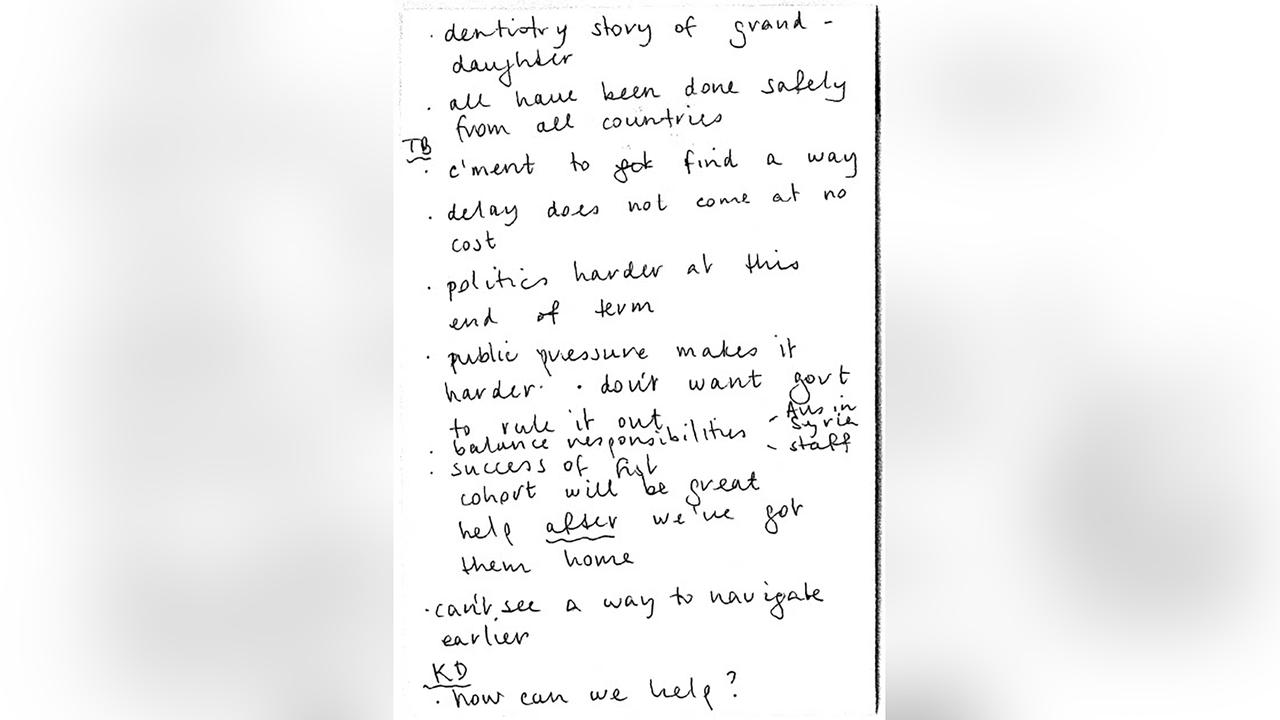 · dentistry story of grand -
daughter
· all have been done safely
from all countries
TB
· c'ment to got find a way
· delay does not come at no
cost
· politics harder at this
end of term
· public pressure makes it
harder. · don't want govt
to rule it out
· balance responsibilities - Aus in
Syria
- staff
· success of fist
cohort will be great
help after we've got
them home
· can't see a way to navigate
earlier
KD
· how can we help?